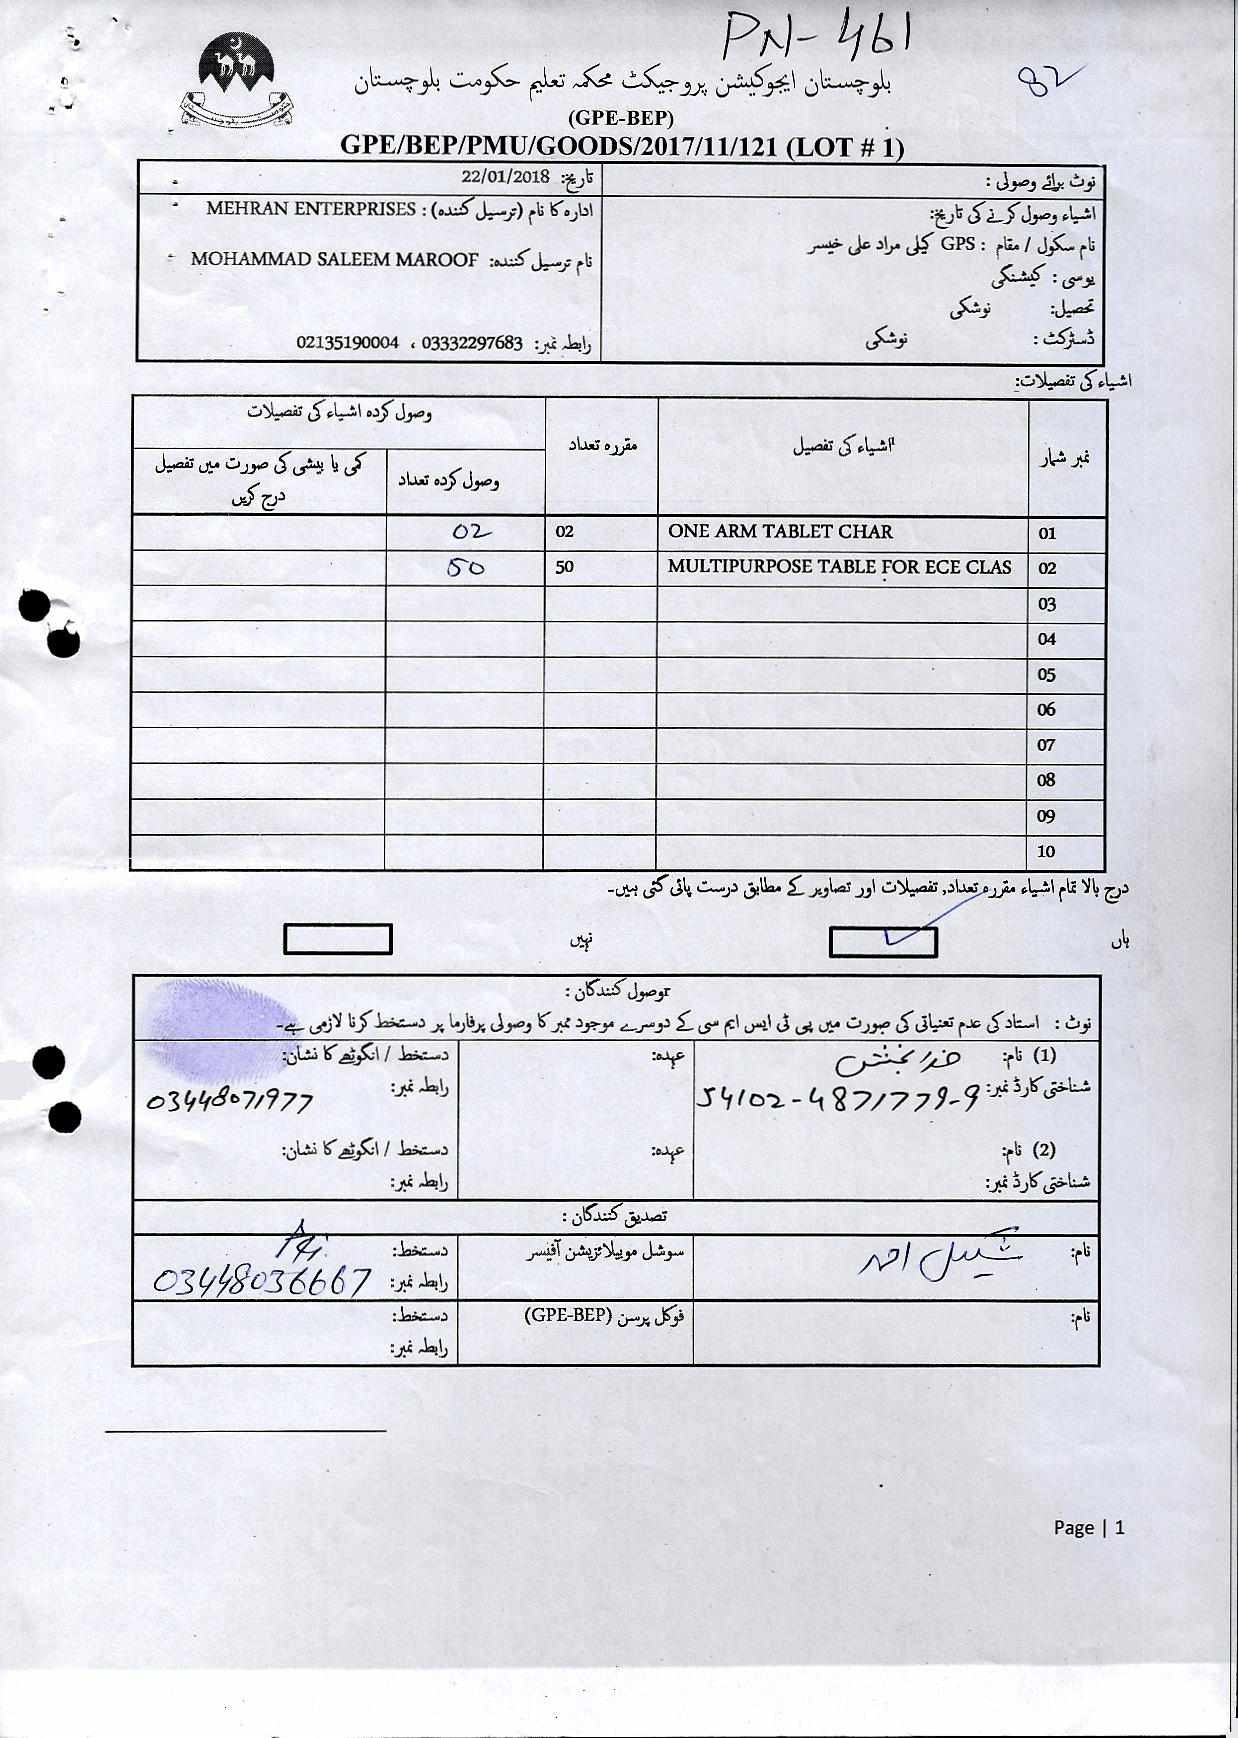 PN-461
82
بلوچستان ایجوکیشن پروجیکٹ محکمہ تعلیم حکومت بلوچستان
(GPE-BEP)
GPE/BEP/PMU/GOODS/2017/11/121 (LOT # 1)
نوٹ برائے وصولی :
تاریخ: 22/01/2018
اشیاء وصول کرنے کی تاریخ:
نام سکول / مقام : GPS کیلی مراد علی خیسر
یوسی : کیشنگی
تحصیل: نوشکی
ڈسٹرکٹ : نوشکی
ادارہ کا نام (ترسیل کنندہ) : MEHRAN ENTERPRISES
نام ترسیل کنندہ: MOHAMMAD SALEEM MAROOF
رابطہ نمبر: 03332297683 ، 02135190004
اشیاء کی تفصیلات:
نمبر شمار اشیاء کی تفصیل مقررہ تعداد وصول کردہ اشیاء کی تفصیلات
وصول کردہ تعداد کمی یا بیشی کی صورت میں تفصیل
درج کریں
01 ONE ARM TABLET CHAR 02 02
02 MULTIPURPOSE TABLE FOR ECE CLAS 50 50
03
04
05
06
07
08
09
10
درج بالا تمام اشیاء مقررہ تعداد, تفصیلات اور تصاویر کے مطابق درست پائی گئی ہیں۔
ہاں نہیں
وصول کنندگان :
نوٹ : استاد کی عدم تعنیاتی کی صورت میں پی ٹی ایس ایم سی کے دوسرے موجود ممبر کا وصولی پرفارما پر دستخط کرنا لازمی ہے۔
(1) نام: خدا بخش عہدہ: دستخط / انگوٹھے کا نشان:
شناختی کارڈ نمبر: 54102-4871779-9 رابطہ نمبر: 03448071977
(2) نام: عہدہ: دستخط / انگوٹھے کا نشان:
شناختی کارڈ نمبر: رابطہ نمبر:
تصدیق کنندگان :
نام: شکیل احمد سوشل موبیلائزیشن آفیسر دستخط:
رابطہ نمبر: 03448036667
نام: فوکل پرسن (GPE-BEP) دستخط:
رابطہ نمبر:
Page | 1